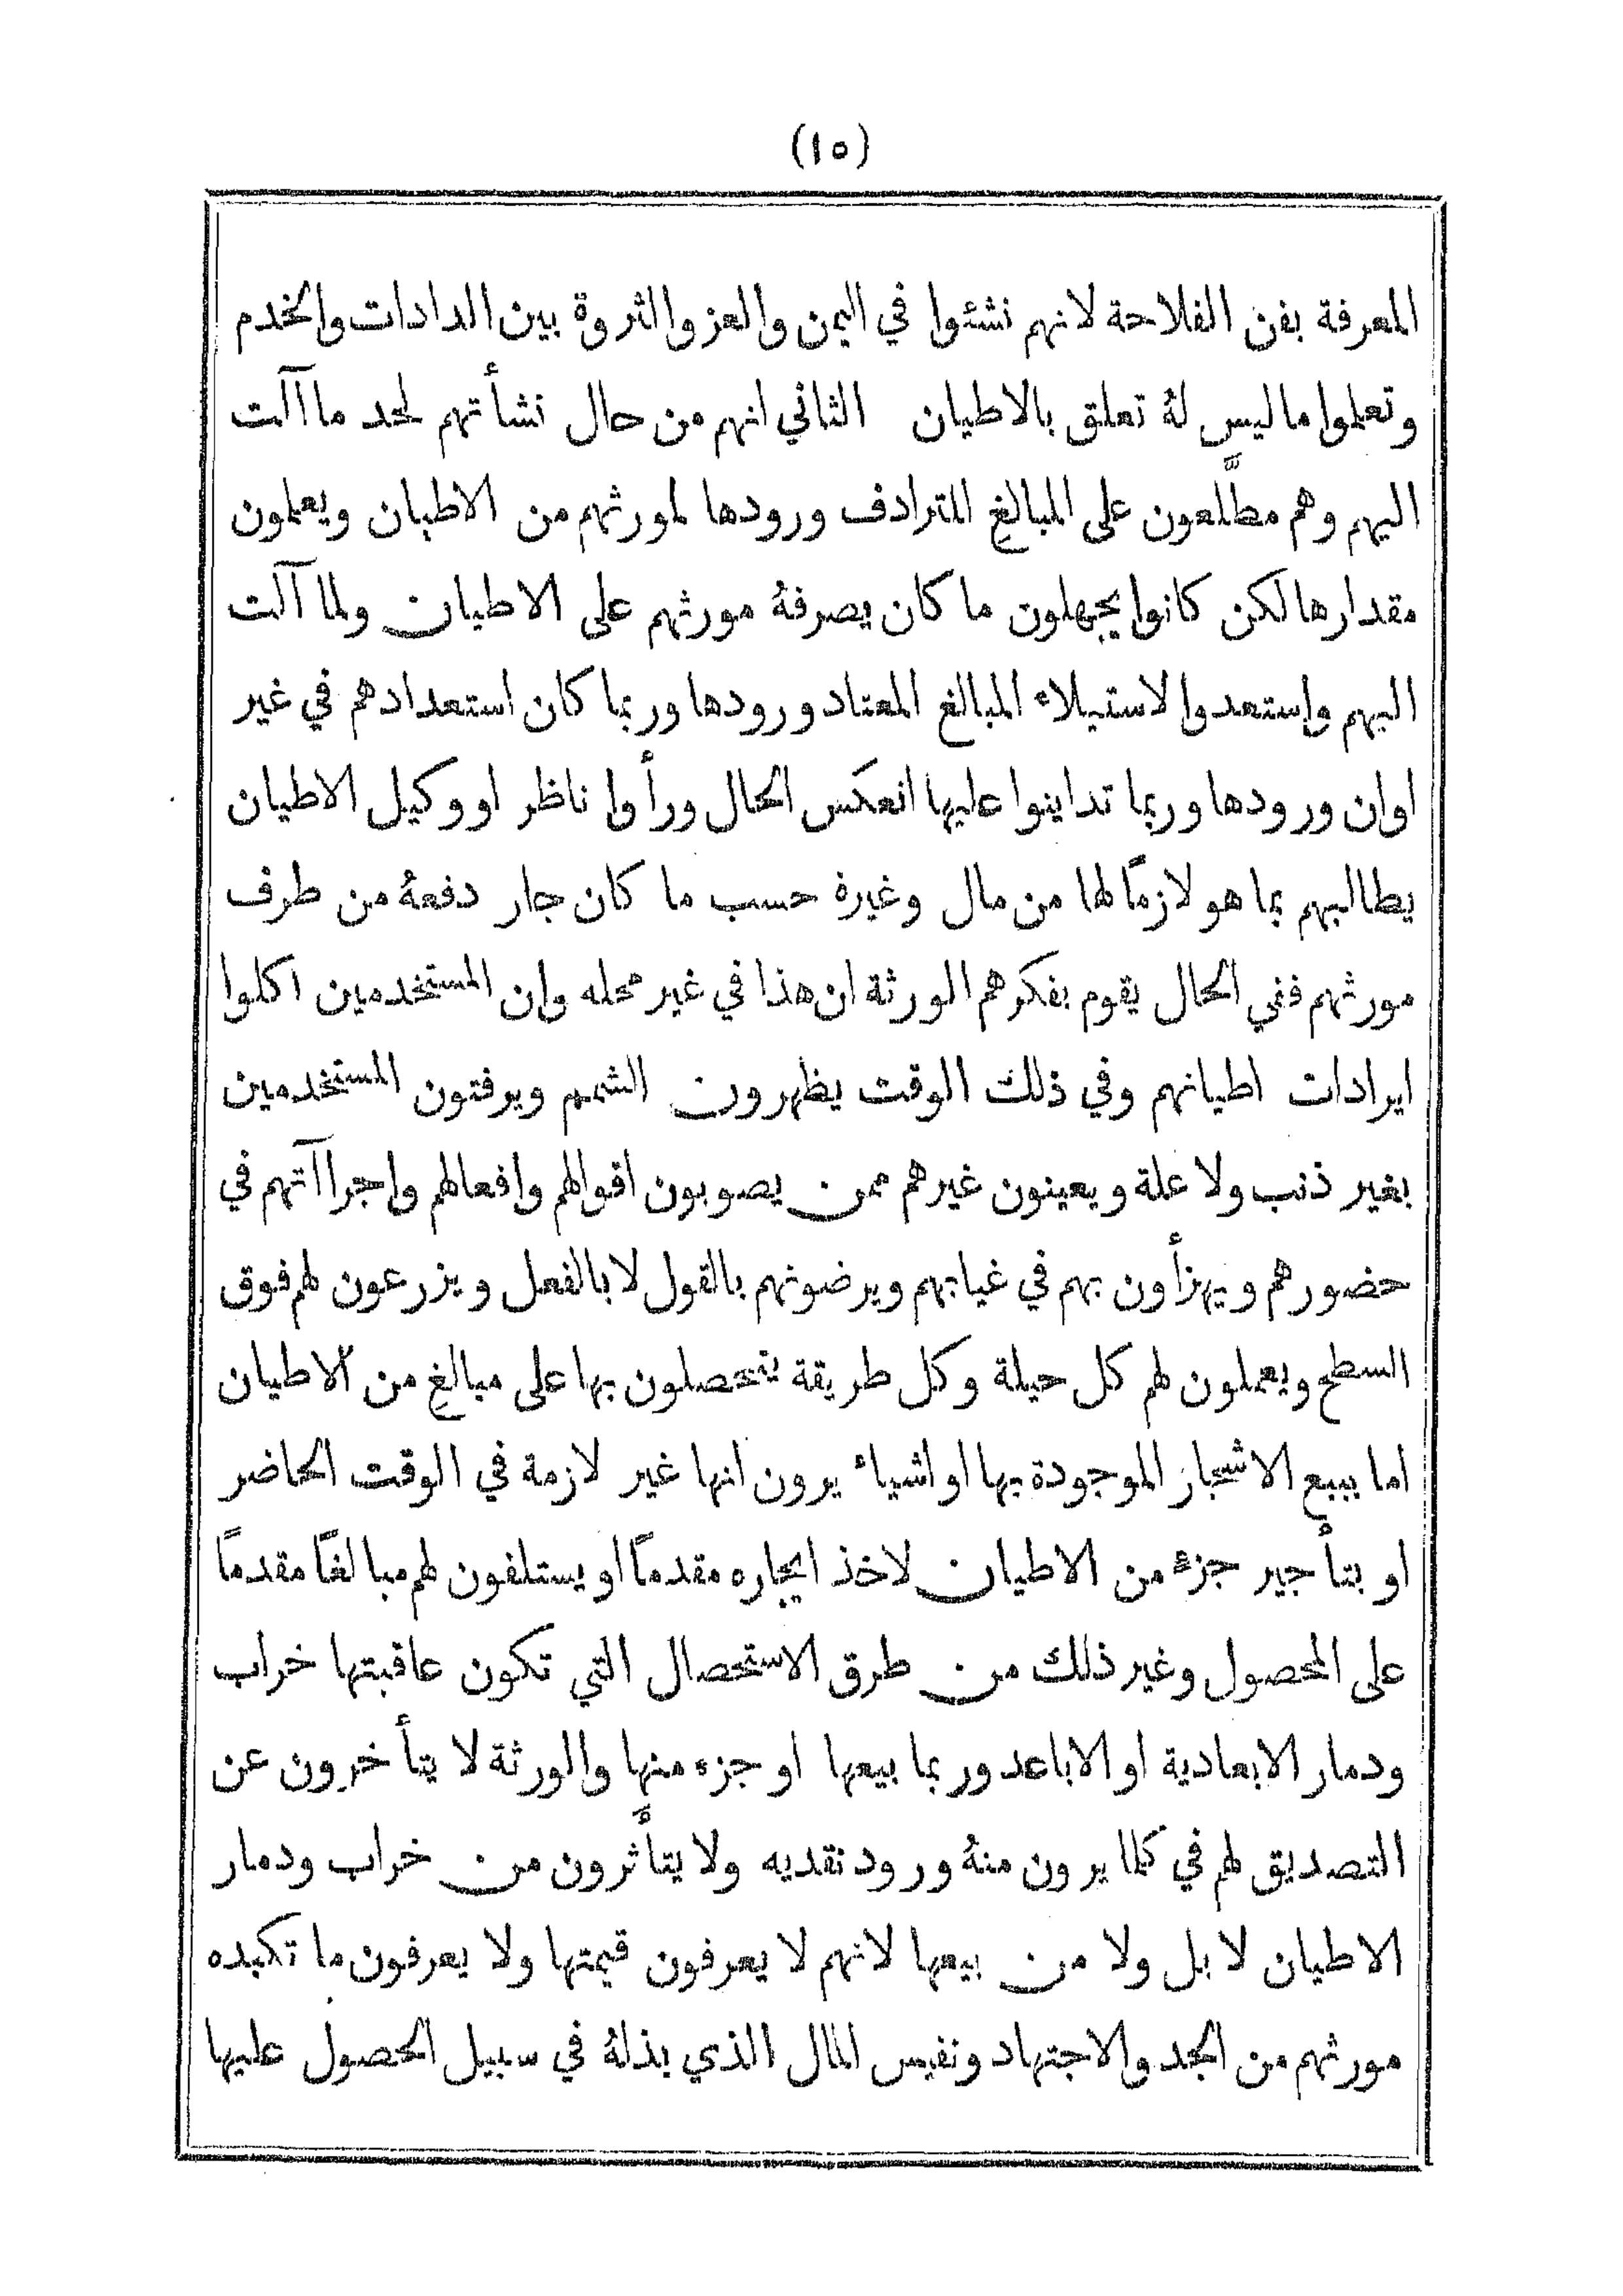 (١٥)
المعرفة بفن الفلاحة لانهم نشئوا في اليمن والعز والثروة بين الدادات والخدم
وتعلموا ما ليس لهُ تعلق بالاطيان الثاني انهم من حال نشأتهم لحد ما آلت
اليهم وهم مطَّلعون على المبالغ المترادف ورودها لمورثهم من الاطيان ويعلمون
مقدارها لكن كانوا يجهلون ما كان يصرفهُ مورثهم على الاطيان ولما آلت
اليهم واستعدوا لاستيلاء المبالغ المعتاد ورودها وربما كان استعدادهم في غير
اوان ورودها وربما تداينوا عليها انعكس الحال ورأوا ناظر او وكيل الاطيان
يطالبهم بما هو لازمًا لها من مال وغيره حسب ما كان جار دفعهُ من طرف
مورثهم ففي الحال يقوم بفكرهم الورثة ان هذا في غير محله وان المستخدمين اكلوا
ايرادات اطيانهم وفي ذلك الوقت يظهرون الشمم ويرفتون المستخدمين
بغير ذنب ولا علة ويعينون غيرهم ممن يصوبون اقوالهم وافعالهم واجراآتهم في
حضورهم ويهزأون بهم في غيابهم ويرضونهم بالقول لا بالفعل ويزرعون لهم فوق
السطح ويعملون لهم كل حيلة وكل طريقة يتحصلون بها على مبالغ من الاطيان
اما ببيع الاشجار الموجودة بها او اشياء يرون انها غير لازمة في الوقت الحاضر
او بتأجير جزء من الاطيان لاخذ ايجاره مقدمًا او يستلفون لهم مبالغًا مقدمًا
على المحصول وغير ذلك من طرق الاستحصال التي تكون عاقبتها خراب
ودمار الابعادية او الاباعد وربما بيعها او جزء منها والورثة لا يتأخرون عن
التصديق لهم في كلما يرون منهُ ورود نقديه ولا يتأثرون من خراب ودمار
الاطيان لا بل ولا من بيعها لانهم لا يعرفون قيمتها ولا يعرفون ما تكبده
مورثهم من الجد والاجتهاد ونفيس المال الذي بذلهُ في سبيل الحصول عليها